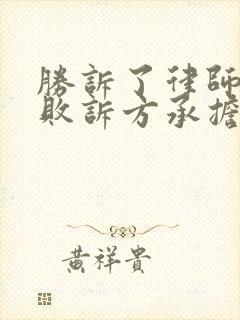 勝訴了律師
敗訴方承擔
黃祥貴